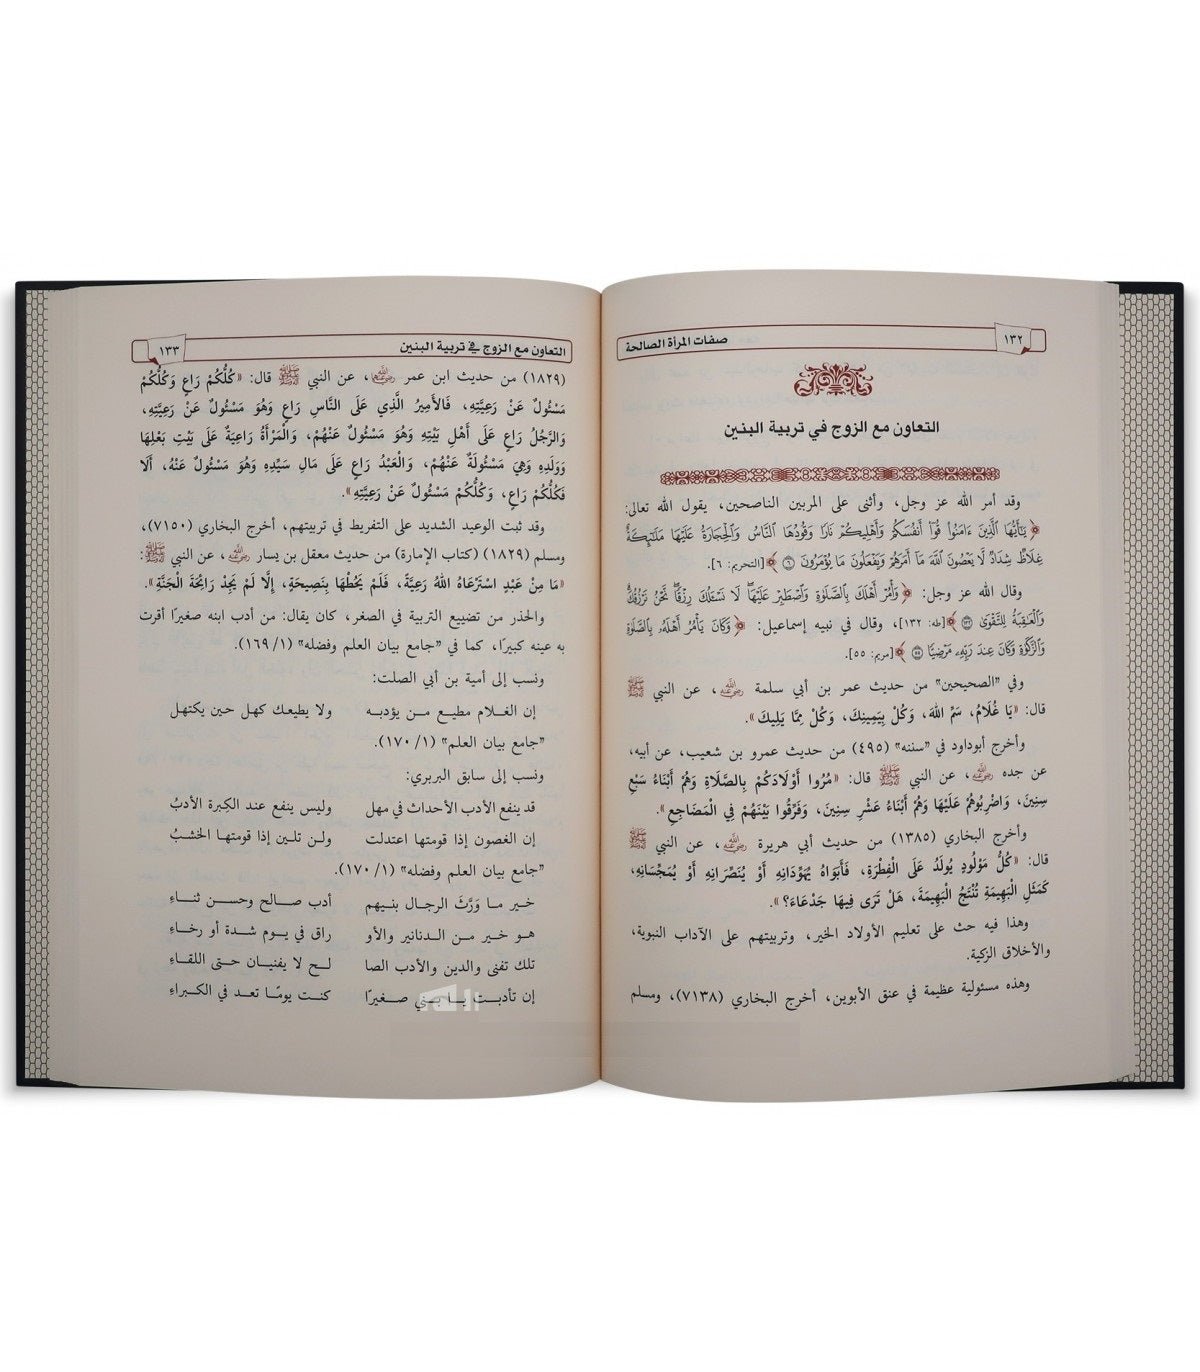 ١٣٢
صفات المرأة الصالحة
التعاون مع الزوج في تربية البنين
وقد أمر الله عز وجل، وأثنى على المربين الناصحين، يقول الله تعالى:
﴿يَٰٓأَيُّهَا ٱلَّذِينَ ءَامَنُوا۟ قُوٓا۟ أَنفُسَكُمْ وَأَهْلِيكُمْ نَارًا وَقُودُهَا ٱلنَّاسُ وَٱلْحِجَارَةُ عَلَيْهَا مَلَٰٓئِكَةٌ
غِلَاظٌ شِدَادٌ لَّا يَعْصُونَ ٱللَّهَ مَآ أَمَرَهُمْ وَيَفْعَلُونَ مَا يُؤْمَرُونَ ٦﴾ [التحريم: ٦].
وقال الله عز وجل: ﴿وَأْمُرْ أَهْلَكَ بِٱلصَّلَوٰةِ وَٱصْطَبِرْ عَلَيْهَا لَا نَسْـَٔلُكَ رِزْقًا نَّحْنُ نَرْزُقُكَ
وَٱلْعَٰقِبَةُ لِلتَّقْوَىٰ ١٣٢﴾ [طه: ١٣٢]، وقال في نبيه إسماعيل: ﴿وَكَانَ يَأْمُرُ أَهْلَهُۥ بِٱلصَّلَوٰةِ
وَٱلزَّكَوٰةِ وَكَانَ عِندَ رَبِّهِۦ مَرْضِيًّا ٥٥﴾ [مريم: ٥٥].
وفي "الصحيحين" من حديث عمر بن أبي سلمة رضي الله عنه، عن النبي ﷺ
قال: «يَا غُلَامُ، سَمِّ اللهَ، وَكُلْ بِيَمِينِكَ، وَكُلْ مِمَّا يَلِيكَ».
وأخرج أبوداود في "سننه" (٤٩٥) من حديث عمرو بن شعيب، عن أبيه،
عن جده رضي الله عنه، عن النبي ﷺ قال: «مُرُوا أَوْلَادَكُمْ بِالصَّلَاةِ وَهُمْ أَبْنَاءُ سَبْعِ
سِنِينَ، وَاضْرِبُوهُمْ عَلَيْهَا وَهُمْ أَبْنَاءُ عَشْرِ سِنِينَ، وَفَرِّقُوا بَيْنَهُمْ فِي الْمَضَاجِعِ».
وأخرج البخاري (١٣٨٥) من حديث أبي هريرة رضي الله عنه، عن النبي ﷺ
قال: «كُلُّ مَوْلُودٍ يُولَدُ عَلَى الْفِطْرَةِ، فَأَبَوَاهُ يُهَوِّدَانِهِ أَوْ يُنَصِّرَانِهِ أَوْ يُمَجِّسَانِهِ،
كَمَثَلِ الْبَهِيمَةِ تُنْتَجُ الْبَهِيمَةَ، هَلْ تَرَى فِيهَا جَدْعَاءَ؟».
وهذا فيه حث على تعليم الأولاد الخير، وتربيتهم على الآداب النبوية،
والأخلاق الزكية.
وهذه مسئولية عظيمة في عنق الأبوين، أخرج البخاري (٧١٣٨)، ومسلم
التعاون مع الزوج في تربية البنين
١٣٣
(١٨٢٩) من حديث ابن عمر رضي الله عنه، عن النبي ﷺ قال: «كُلُّكُمْ رَاعٍ وَكُلُّكُمْ
مَسْئُولٌ عَنْ رَعِيَّتِهِ، فَالأَمِيرُ الَّذِي عَلَى النَّاسِ رَاعٍ وَهُوَ مَسْئُولٌ عَنْ رَعِيَّتِهِ،
وَالرَّجُلُ رَاعٍ عَلَى أَهْلِ بَيْتِهِ وَهُوَ مَسْئُولٌ عَنْهُمْ، وَالْمَرْأَةُ رَاعِيَةٌ عَلَى بَيْتِ بَعْلِهَا
وَوَلَدِهِ وَهِيَ مَسْئُولَةٌ عَنْهُمْ، وَالْعَبْدُ رَاعٍ عَلَى مَالِ سَيِّدِهِ وَهُوَ مَسْئُولٌ عَنْهُ، أَلَا
فَكُلُّكُمْ رَاعٍ، وَكُلُّكُمْ مَسْئُولٌ عَنْ رَعِيَّتِهِ».
وقد ثبت الوعيد الشديد على التفريط في تربيتهم، أخرج البخاري (٧١٥٠)،
ومسلم (١٨٢٩) (كتاب الإمارة) من حديث معقل بن يسار رضي الله عنه، عن النبي ﷺ:
«مَا مِنْ عَبْدٍ اسْتَرْعَاهُ اللهُ رَعِيَّةً، فَلَمْ يَحُطْهَا بِنَصِيحَةٍ، إِلَّا لَمْ يَجِدْ رَائِحَةَ الْجَنَّةِ».
والحذر من تضييع التربية في الصغر، كان يقال: من أدب ابنه صغيرًا أقرت
به عينه كبيرًا، كما في "جامع بيان العلم وفضله" (١/ ١٦٩).
ونسب إلى أمية بن أبي الصلت:
إن الغلام مطيع من يؤدبه ولا يطيعك كهل حين يكتهل
"جامع بيان العلم" (١/ ١٧٠).
ونسب إلى سابق البربري:
قد ينفع الأدب الأحداث في مهل وليس ينفع عند الكِبرة الأدبُ
إن الغصون إذا قومتها اعتدلت ولن تلين إذا قومتها الخشبُ
"جامع بيان العلم وفضله" (١/ ١٧٠).
خير ما وَرَّثَ الرجال بنيهم أدب صالح وحسن ثناءِ
هو خير من الدنانير والأو راق في يوم شدة أو رخاءِ
تلك تفنى والدين والأدب الصا لح لا يفنيان حتى اللقاءِ
إن تأدبت يا بني صغيرًا كنت يومًا تعد في الكبراءِ